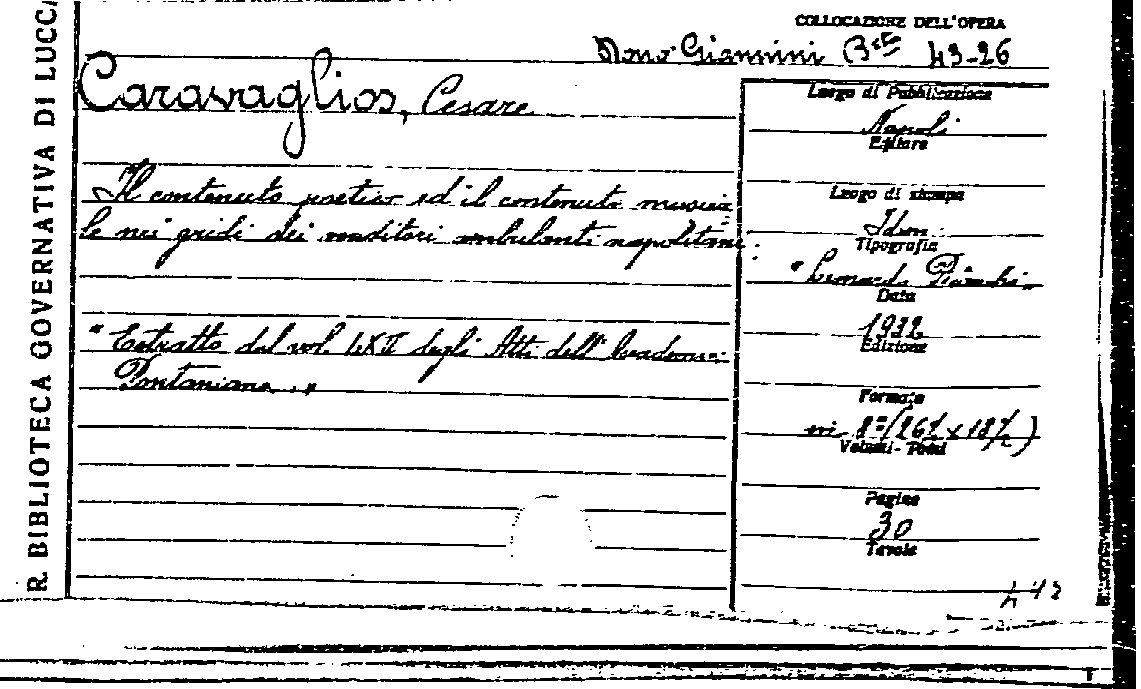 R. BIBLIOTECA GOVERNATIVA DI LUCCA
COLLOCAZIONE DELL'OPERA
Dono Giannini Bta 43-26
Caravaglios, Cesare
Il contenuto poetico ed il contenuto musica
le nei gridi dei venditori ambulanti napoletani.
"Estratto dal vol. LXII degli Atti dell'Accademia
Pontaniana."
Luogo di Pubblicazione
Napoli
Editore
Luogo di stampa
Idem.
Tipografia
"
Data
1932
Edizione
Formato
in 8° (26½ x 18½)
Volumi - Tomi
Pagine
30
Tavole